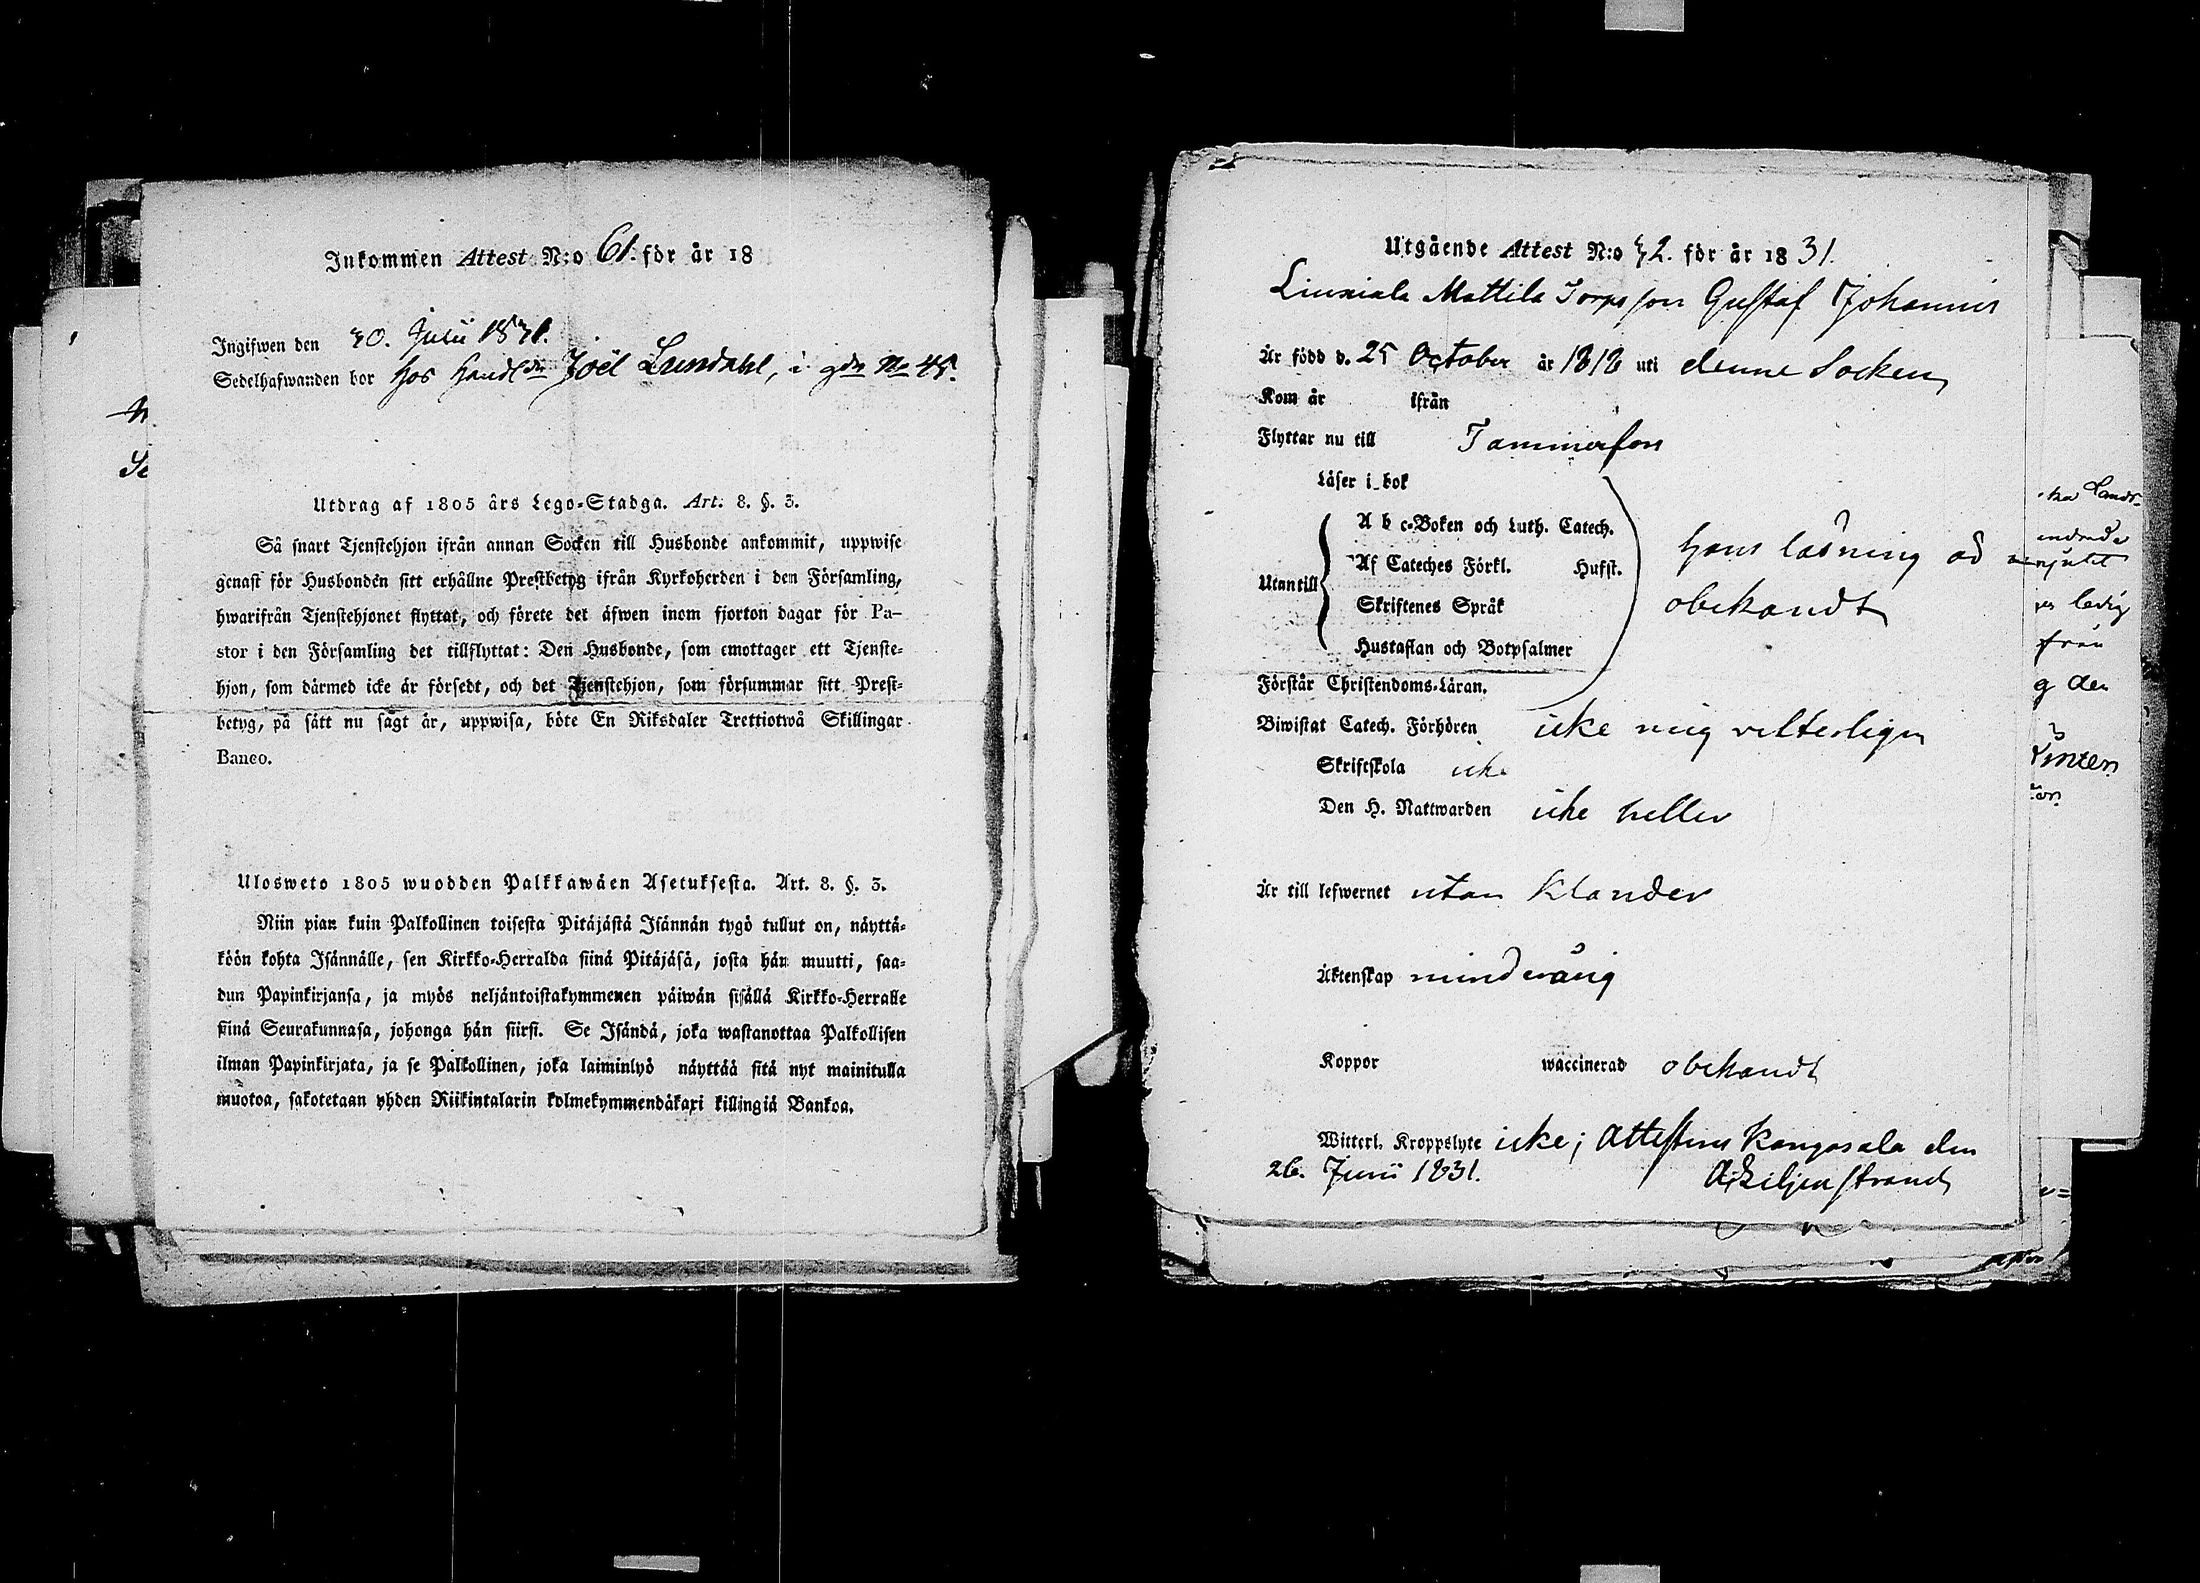 Inkommen Attest N:o 61. för år 18
Ingifwen den 30. Julii 1831.
Sedelhafwanden bor hos Handl:dn Joël Lundahl, i gdn No 45.
Utdrag af 1805 års Lego-Stadga. Art. 8. §. 3.
Så snart Tjenstehjon ifrån annan Socken till Husbonde ankommit, uppwise
genast för Husbonden sitt erhållne Prestbetyg ifrån Kyrkoherden i den Församling,
hwarifrån Tjenstehjonet flyttat, och förete det äfwen inom fjorton dagar för Pa-
stor i den Församling det tillflyttat: Den Husbonde, som emottager ett Tjenste-
hjon, som därmed icke är försedt, och det Tjenstehjon, som försummar sitt Prest-
betyg, på sätt nu sagt är, uppwisa, böte En Riksdaler Trettiotwå Skillingar
Banco.
Ulosweto 1805 wuodden Palkkawäen Asetuksesta. Art. 8. §. 3.
Niin pian kuin Palkollinen toisesta Pitäjästä Isännän tygö tullut on, näyttä-
köön kohta Isännälle, sen Kirkko-Herralda siinä Pitäjäsä, josta hän muutti, saa-
dun Papinkirjansa, ja myös neljäntoistakymmenen päiwän sisällä Kirkko-Herralle
siinä Seurakunnasa, johonga hän siirsi. Se Isändä, joka wastanottaa Palkollisen
ilman Papinkirjata, ja se Palkollinen, joka laiminlyö näyttää sitä nyt mainitulla
muotoa, sakotetaan yhden Riikintalarin kolmekymmendäkaxi killingiä Bankoa.
Utgående Attest N:o 32. för år 1831.
Liuxiala Mattila Torps son Gustaf Johannis
Är född d. 25 October år 1818 uti denne Socken
Kom år ifrån
Flyttar nu till Tammerfors
Läser i bok
A b c-Boken och Luth. Catech.
Utantill Af Cateches Förkl. Husst.
Skriftenes Språk
Hustaflan och Botpsalmer
hans läsning är
obekandt
Förstår Christendoms-Läran.
Biwistat Catech. Förhören icke mig vetterligen
Skriftskola icke
Den H. Nattwarden icke heller
Är till lefwernet utan klander
Äktenskap minderårig
Koppor waccinerad obekandt
Witterl. Kroppslyte icke; attesteras Kangasala den
26. Junii 1831. A: Liljenstrand
ledig
ifrån
g den